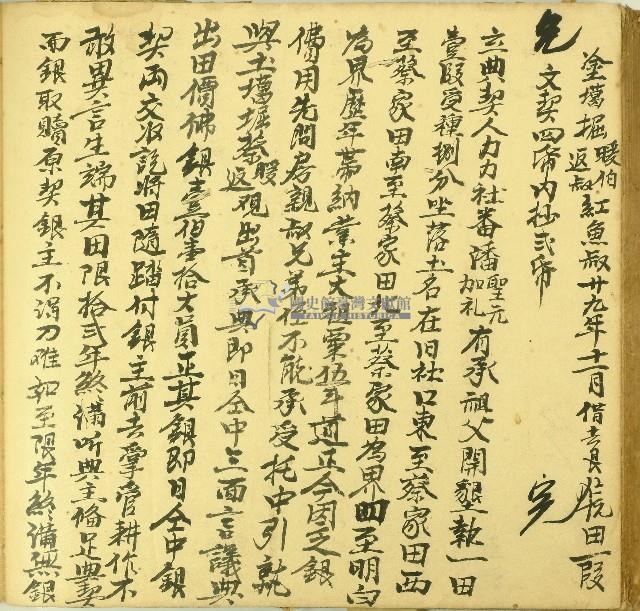 塗墈掘暖伯返叔紅魚叔廿九年十一月借去長田一段
文契四帋內抄弍帋
立典契人力力社番潘聖元加礼有承祖父開墾埶一田
壹段受種捌分坐落土名在旧社口東至蔡家田西
至蔡家田南至蔡家田北至蔡家田為界四至明白
為界歷年帶納業主大租粟伍斗道正今因乏銀
費用先問房親叔兄弟侄不能承受托中引就
與土墈掘蔡暖返觀出首承典即日仝中三面言議典
出田價佛銀壹佰壹拾大員正其銀即日仝中銀
契両交收訖將田隨踏付銀主前去掌管耕作不
敢異言生端其田限拾弍年終滿听典主俻足典契
面銀取贖原契銀主不得刁难如至限年終滿無銀
國史館臺灣文獻館
TAIWAN HISTORICA